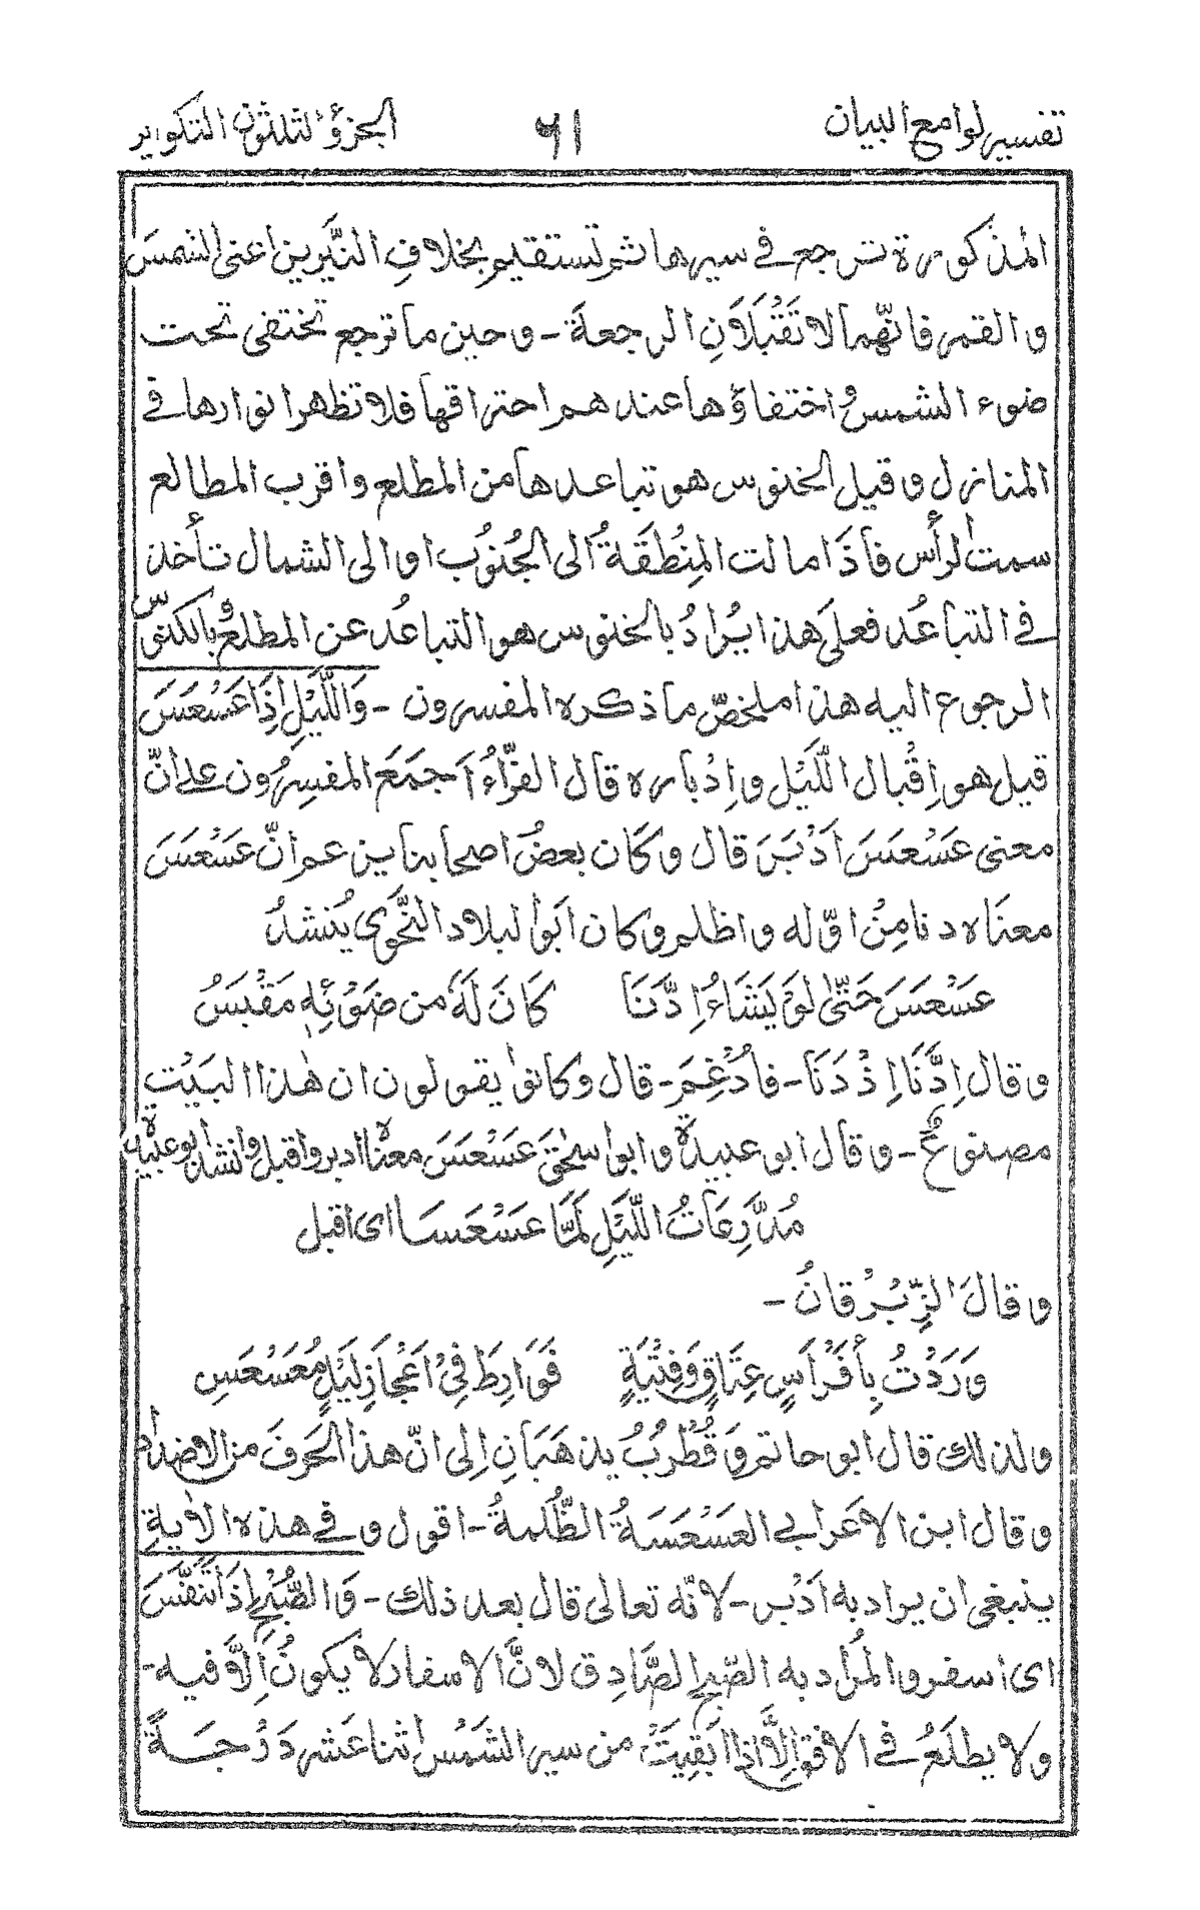 تفسير لوامع البيان ٦١ الجزؤ الثلثون التكوير
المذكورة ترجع فى سيرها ثم تستقيم بخلافِ النيَّرين اعنى الشمسَ
و القمر فانّهما لا تَقْبَلَانِ الرجعة - و حين ما ترجع تختفى تحت
ضوء الشمس و اختفاؤها عندهم احتراقها فلا تظهر انوارها فى
المنازل و قيل الخنوس هو تباعدها من المطلع و اقرب المطالع
سمت الرأس فاذَا مالت المِنْطَقَةُ الى الجُنوُب او الى الشمال تأخذ
فى التباعُد فعلَى هذا يُرادُ بالخنوس هو التباعُد عن المطلع و بالكنوس
الرجوع اليه هذا ملخصّ ما ذكره المفسرون - وَاللَّيْلِ اِذَا عَسْعَسَ
قيل هو اِقْبال اللَّيْل و اِدْباره قال الفرَّاءُ اَجمَعَ المفسِرُون على انّ
معنى عَسْعَسَ اَدْبَرَ قال و كَان بعضُ اصحابنا يزعم انّ عَسْعَسَ
معنَاه دنا مِنْ اوّله و اظلم و كان ابَوا لبلاد النَّحْوِى يُنشدُ
عَسْعَسَ حَتّٰى لَوْ يَشَاءُ اِدَّنَا كَانَ لَهٗ من ضَوْئِهٖ مَقْبَسُ
و قال اِدَّنَا اِذْ دَنَا - فادُغِمَ - قال و كانوا يقولون ان هٰذا البَيْت
مصنوعٌ - و قال ابو عبيدة و ابو اسحٰق عَسْعَسَ معناه ادبر و اقبل و انشد ابو عبيدة
مُدَّرِعَاتُ اللَّيْلِ لَمّا عَسْعَسَا اى اقبل
و قالَ الزِّبْرُقانُ -
وَرَدْتُ بِأَفْرَاسٍ عِتَاقٍ وَفِتْيَةٍ فَوَارِطَ فِىْ اَعْجَازِ لَيْلٍ مُعَسْعَسِ
ولذلك قال ابو حاتم وَ قُطْرُبُ يذهَبَانِ اِلى انّ هذا الحَرفَ من الاضداد
و قال ابن الاعَرابى العَسْعَسَةُ الظُّلمةُ - اقول و فى هذه الاٰيةِ
ينبغى ان يراد به ادَبْر - لانّه تعالى قال بعد ذلك - وَالصُّبْحِ اِذَا تَنَفَّسَ
اى اسفر و المُراد به الصّبح الصَّادِق لانَّ الاسفار لا يكونُ اِلاَّ فيه -
ولا يطلَعُ فى الافق اِلَّا اذا بَقِيَتْ من سير الشَمْس اثنا عَشر دَرْجَةً